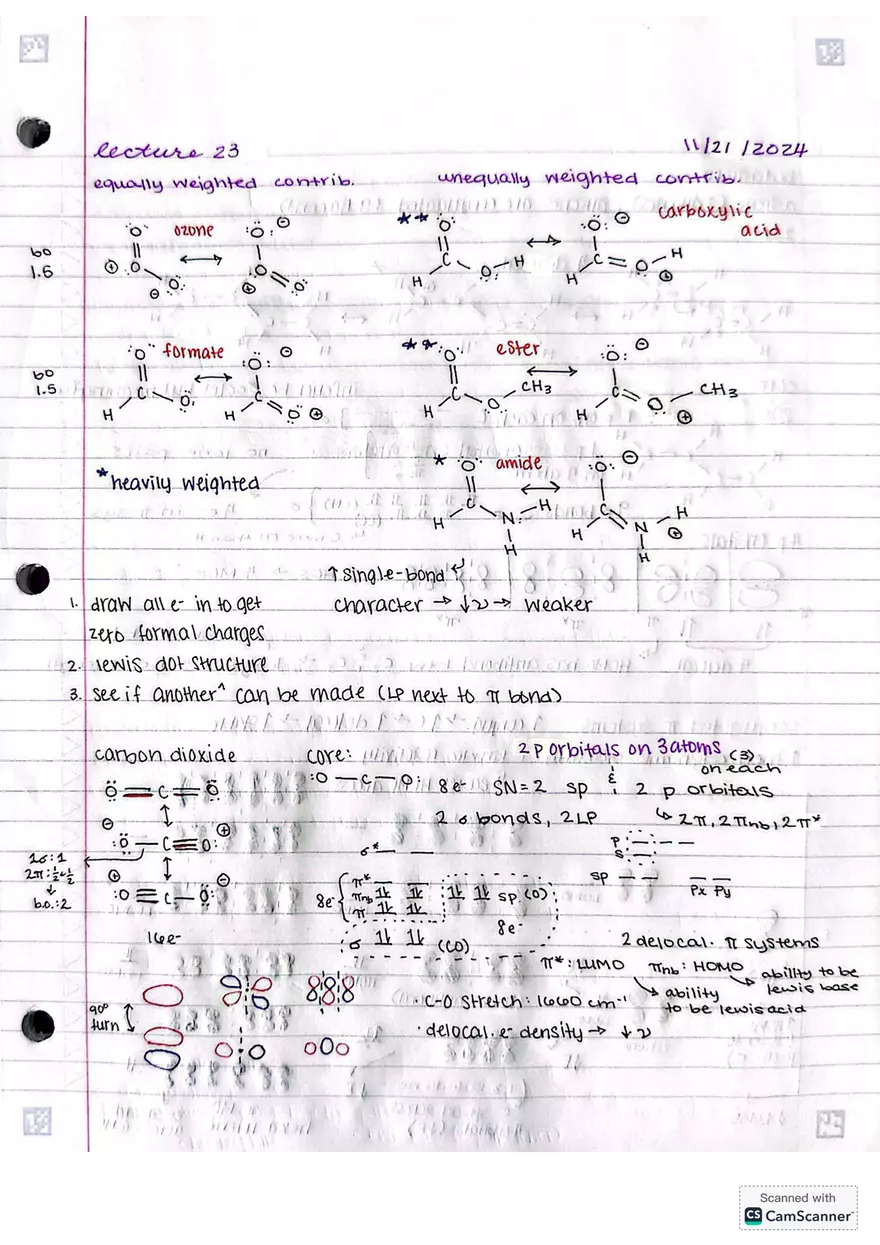 lecture 23 11/21/2024
equally weighted contrib. unequally weighted contrib.
ozone ** carboxylic acid
bo
1.6
formate ** ester
bo
1.5
CH3 CH3
* heavily weighted * amide
↑ single-bond
1. draw all e- in to get character → ↓ν → weaker
zero formal charges
2. lewis dot structure
3. see if another^ can be made (LP next to π bond)
carbon dioxide core: 2 p orbitals on 3 atoms (3)
on each
:O — C — O: 8e- SN=2 sp & 2 p orbitals
Ö = C = Ö
2 σ bonds, 2LP ↳ 2π, 2πnb, 2π*
⊖ :Ö — C ≡ O: ⊕
1σ:1
2π:½+½
↓
b.o.:2
⊕ :O ≡ C — Ö: ⊖
16e-
σ*
π*
πnb 1l 1l 1l 1l sp (O)
8e-
π 1l 1l
8e-
σ 1l 1l (CO)
p
s
sp
px py
2 delocal. π systems
π*: LUMO πnb: HOMO
↳ ability to be lewis acid
↳ ability to be lewis base
90°
turn
· C-O stretch: 1660 cm-1
· delocal. e- density → ↓ν
Scanned with
CS CamScanner